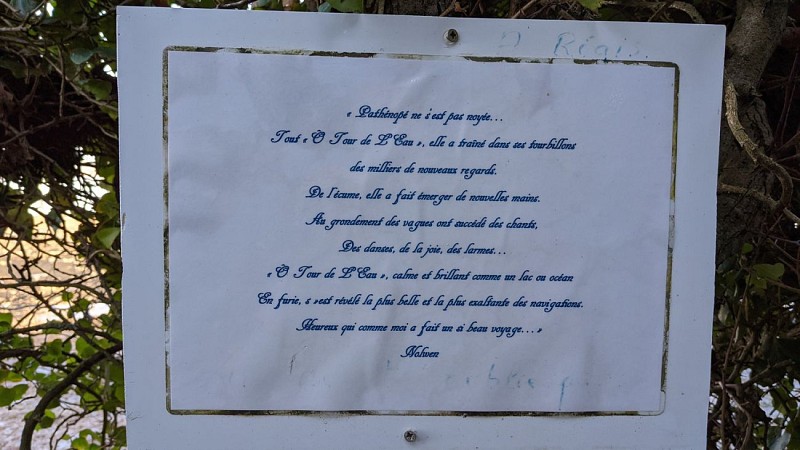 Régis
« Pathénopé ne s'est pas noyée...
Tout « Ô Tour de L'Eau », elle a traîné dans ses tourbillons
des milliers de nouveaux regards.
De l'écume, elle a fait émerger de nouvelles mains.
Au grondement des vagues ont succédé des chants,
Des danses, de la joie, des larmes...
« Ô Tour de L'Eau », calme et brillant comme un lac ou océan
En furie, s »est révélé la plus belle et la plus exaltante des navigations.
Heureux qui comme moi a fait un si beau voyage... »
Nolwen